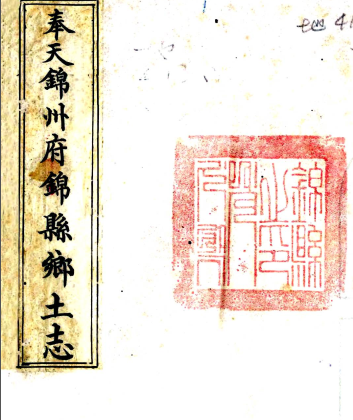 奉天錦州府錦縣鄉土志
地 41
錦縣